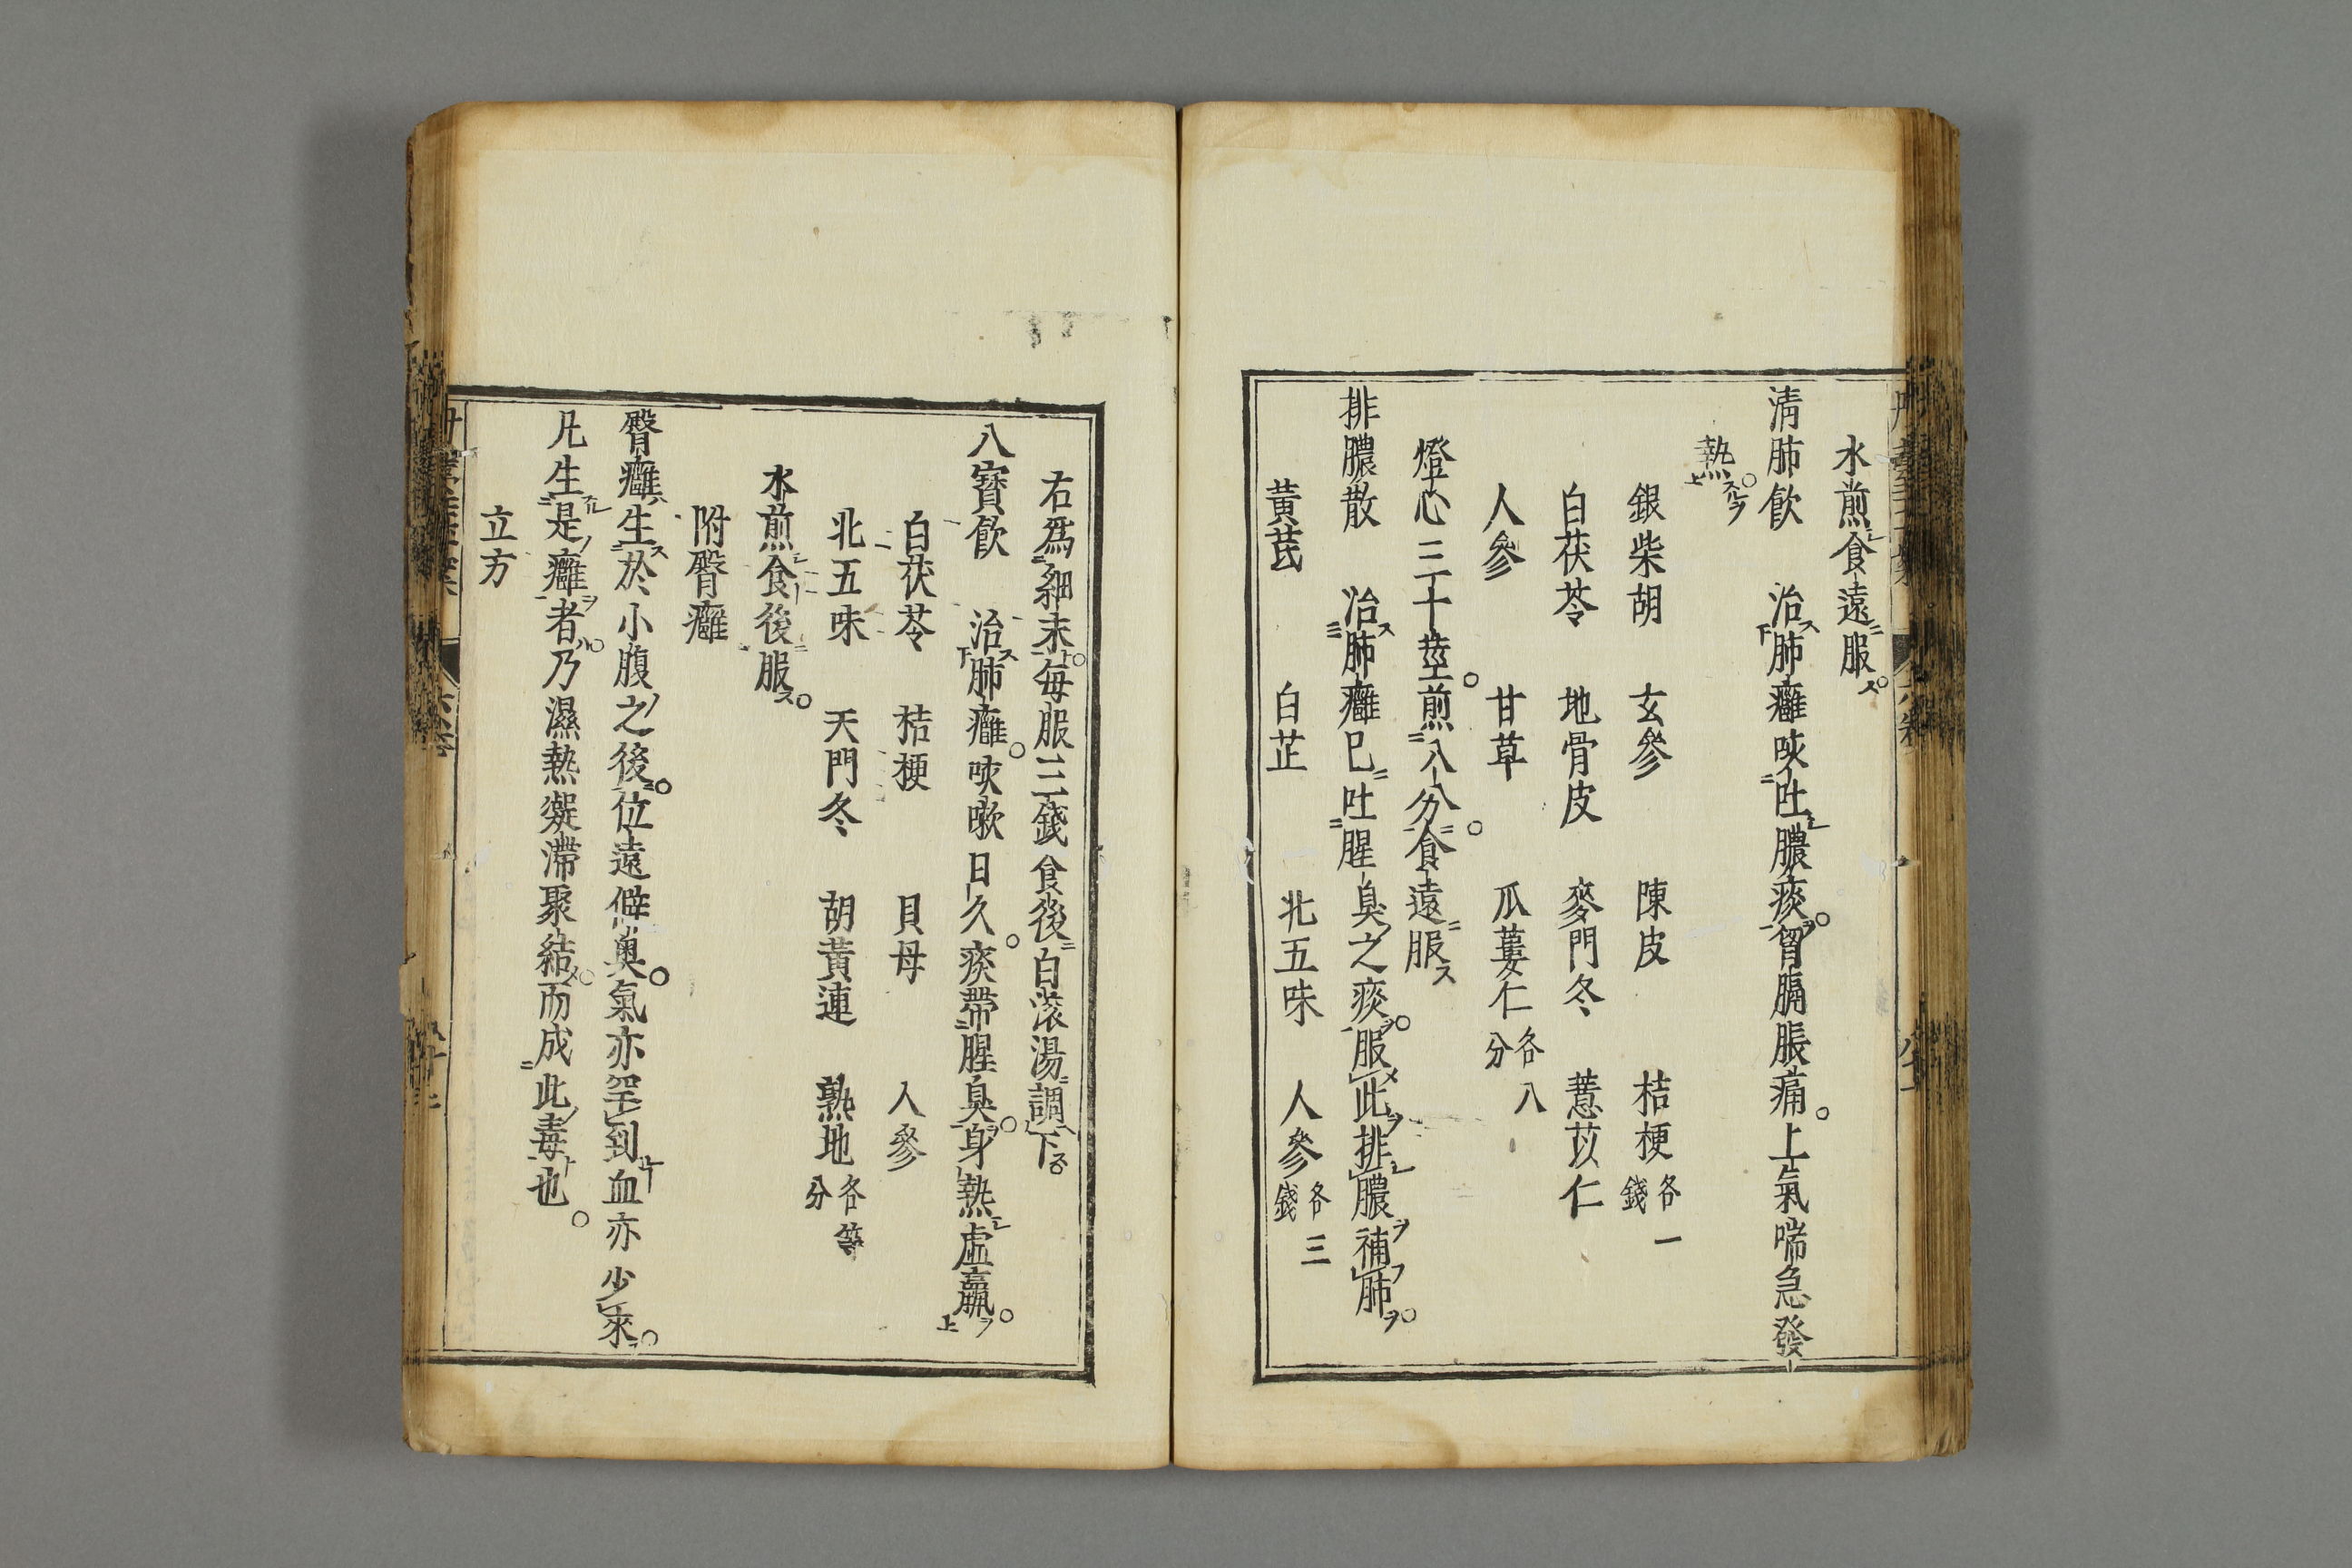 水煎食遠服
清肺飲　治肺癰咳吐膿痰胷膈脹痛上氣喘急發
熱
銀柴胡　玄參　陳皮　桔梗各一錢
白茯苓　地骨皮　麥門冬　薏苡仁
人參　甘草　瓜蔞仁各八分
燈心三十莖煎入八分食遠服
排膿散　治肺癰已吐腥臭之痰服此排膿補肺
黃芪　白芷　北五味　人參各三錢
右爲細末每服三錢食後白滚湯調下
八寶飲　治肺癰咳嗽日久痰帶腥臭身熱虛羸
白茯苓　桔梗　貝母　人參
北五味　天門冬　胡黃連　熟地各等分
水煎食後服
附臀癰
臀癰生於小腹之後位遠僻奧氣亦罕到血亦少來
凡生是癰者乃濕熱凝滯聚結而成此毒也
立方